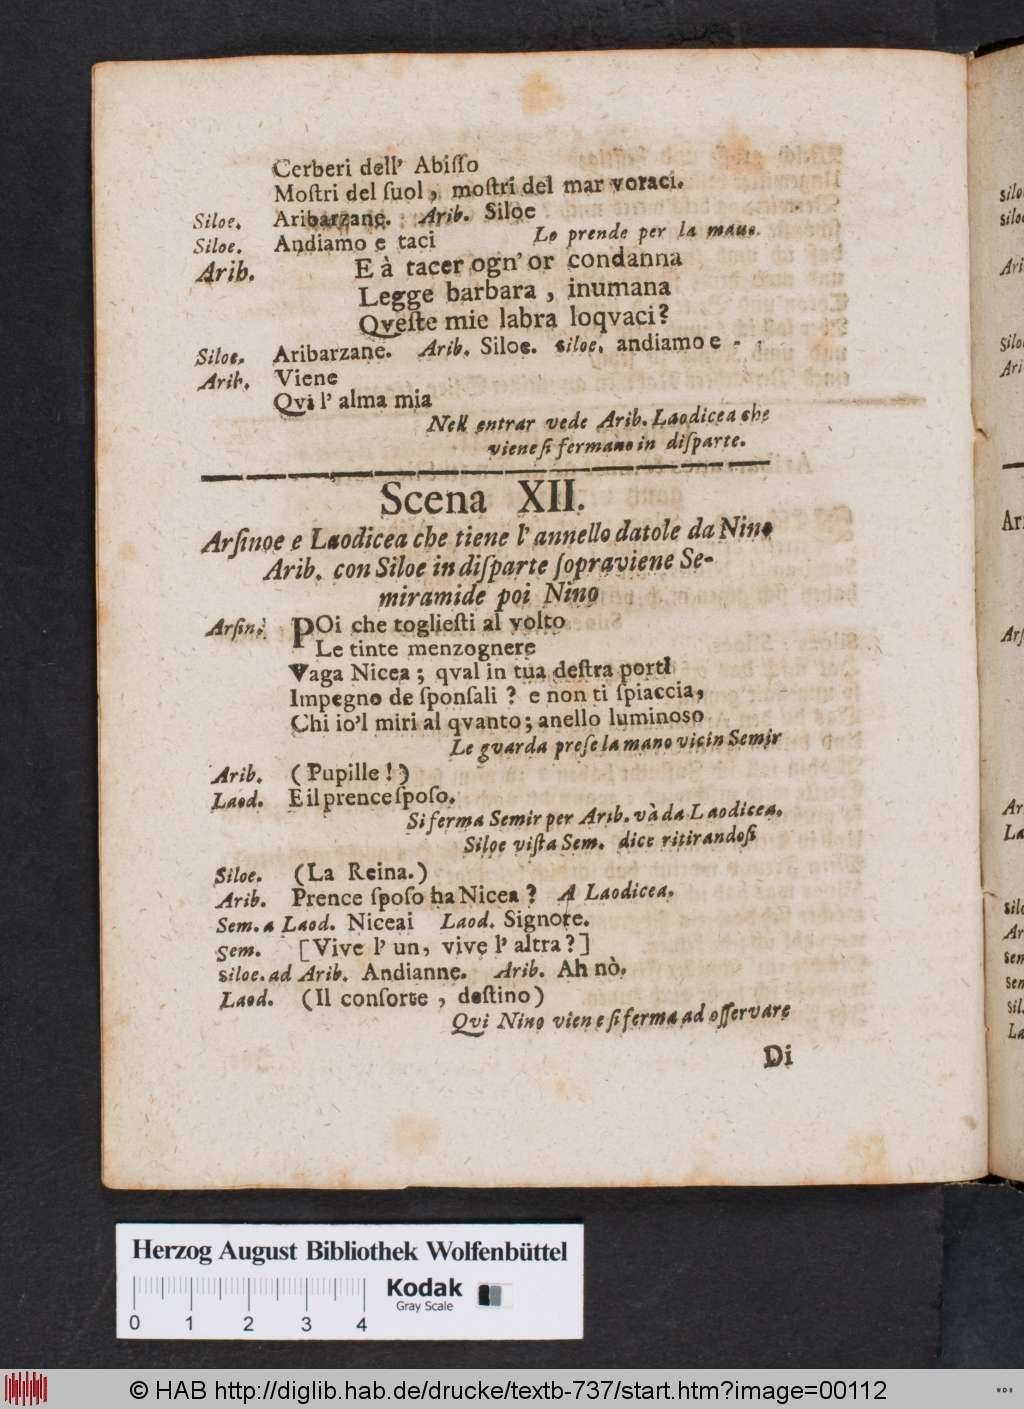 Cerberi dell' Abiſſo
Moſtri del ſuol, moſtri del mar voraci.
Siloe. Aribarzane. Arib. Siloe
Siloe. Andiamo e taci Lo prende per la mano.
Arib. E à tacer ogn' or condanna
Legge barbara, inumana
Qveſte mie labra loqvaci?
Siloe. Aribarzane. Arib. Siloe. siloe. andiamo e - -
Arib. Viene
Qvi l' alma mia
Nell entrar vede Arib. Laodicea che
viene ſi fermano in diſparte.
Scena XII.
Arſinoe e Laodicea che tiene l' annello datole da Nino
Arib. con Siloe in diſparte ſopraviene Se-
miramide poi Nino
Arſin. POi che toglieſti al volto
Le tinte menzognere
Vaga Nicea; qval in tua deſtra porti
Impegno de ſponſali? e non ti ſpiaccia,
Chi io'l miri al qvanto; anello luminoso
Le gvarda preſe la mano vicin Semir
Arib. (Pupille!)
Laod. E il prence ſpoſo.
Si ferma Semir per Arib. và da Laodicea.
Siloe viſta Sem. dice ritirandoſi
Siloe. (La Reina.)
Arib. Prence ſpoſo ha Nicea? A Laodicea.
Sem. a Laod. Niceai Laod. Signore.
Sem. [Vive l' un, vive l' altra?]
siloe. ad Arib. Andianne. Arib. Ah nò.
Laod. (Il conſorte, deſtino)
Qvi Nino viene ſi ferma ad oſſervare
Di
Herzog August Bibliothek Wolfenbüttel
0 1 2 3 4
Kodak
Gray Scale
© HAB http://diglib.hab.de/drucke/textb-737/start.htm?image=00112